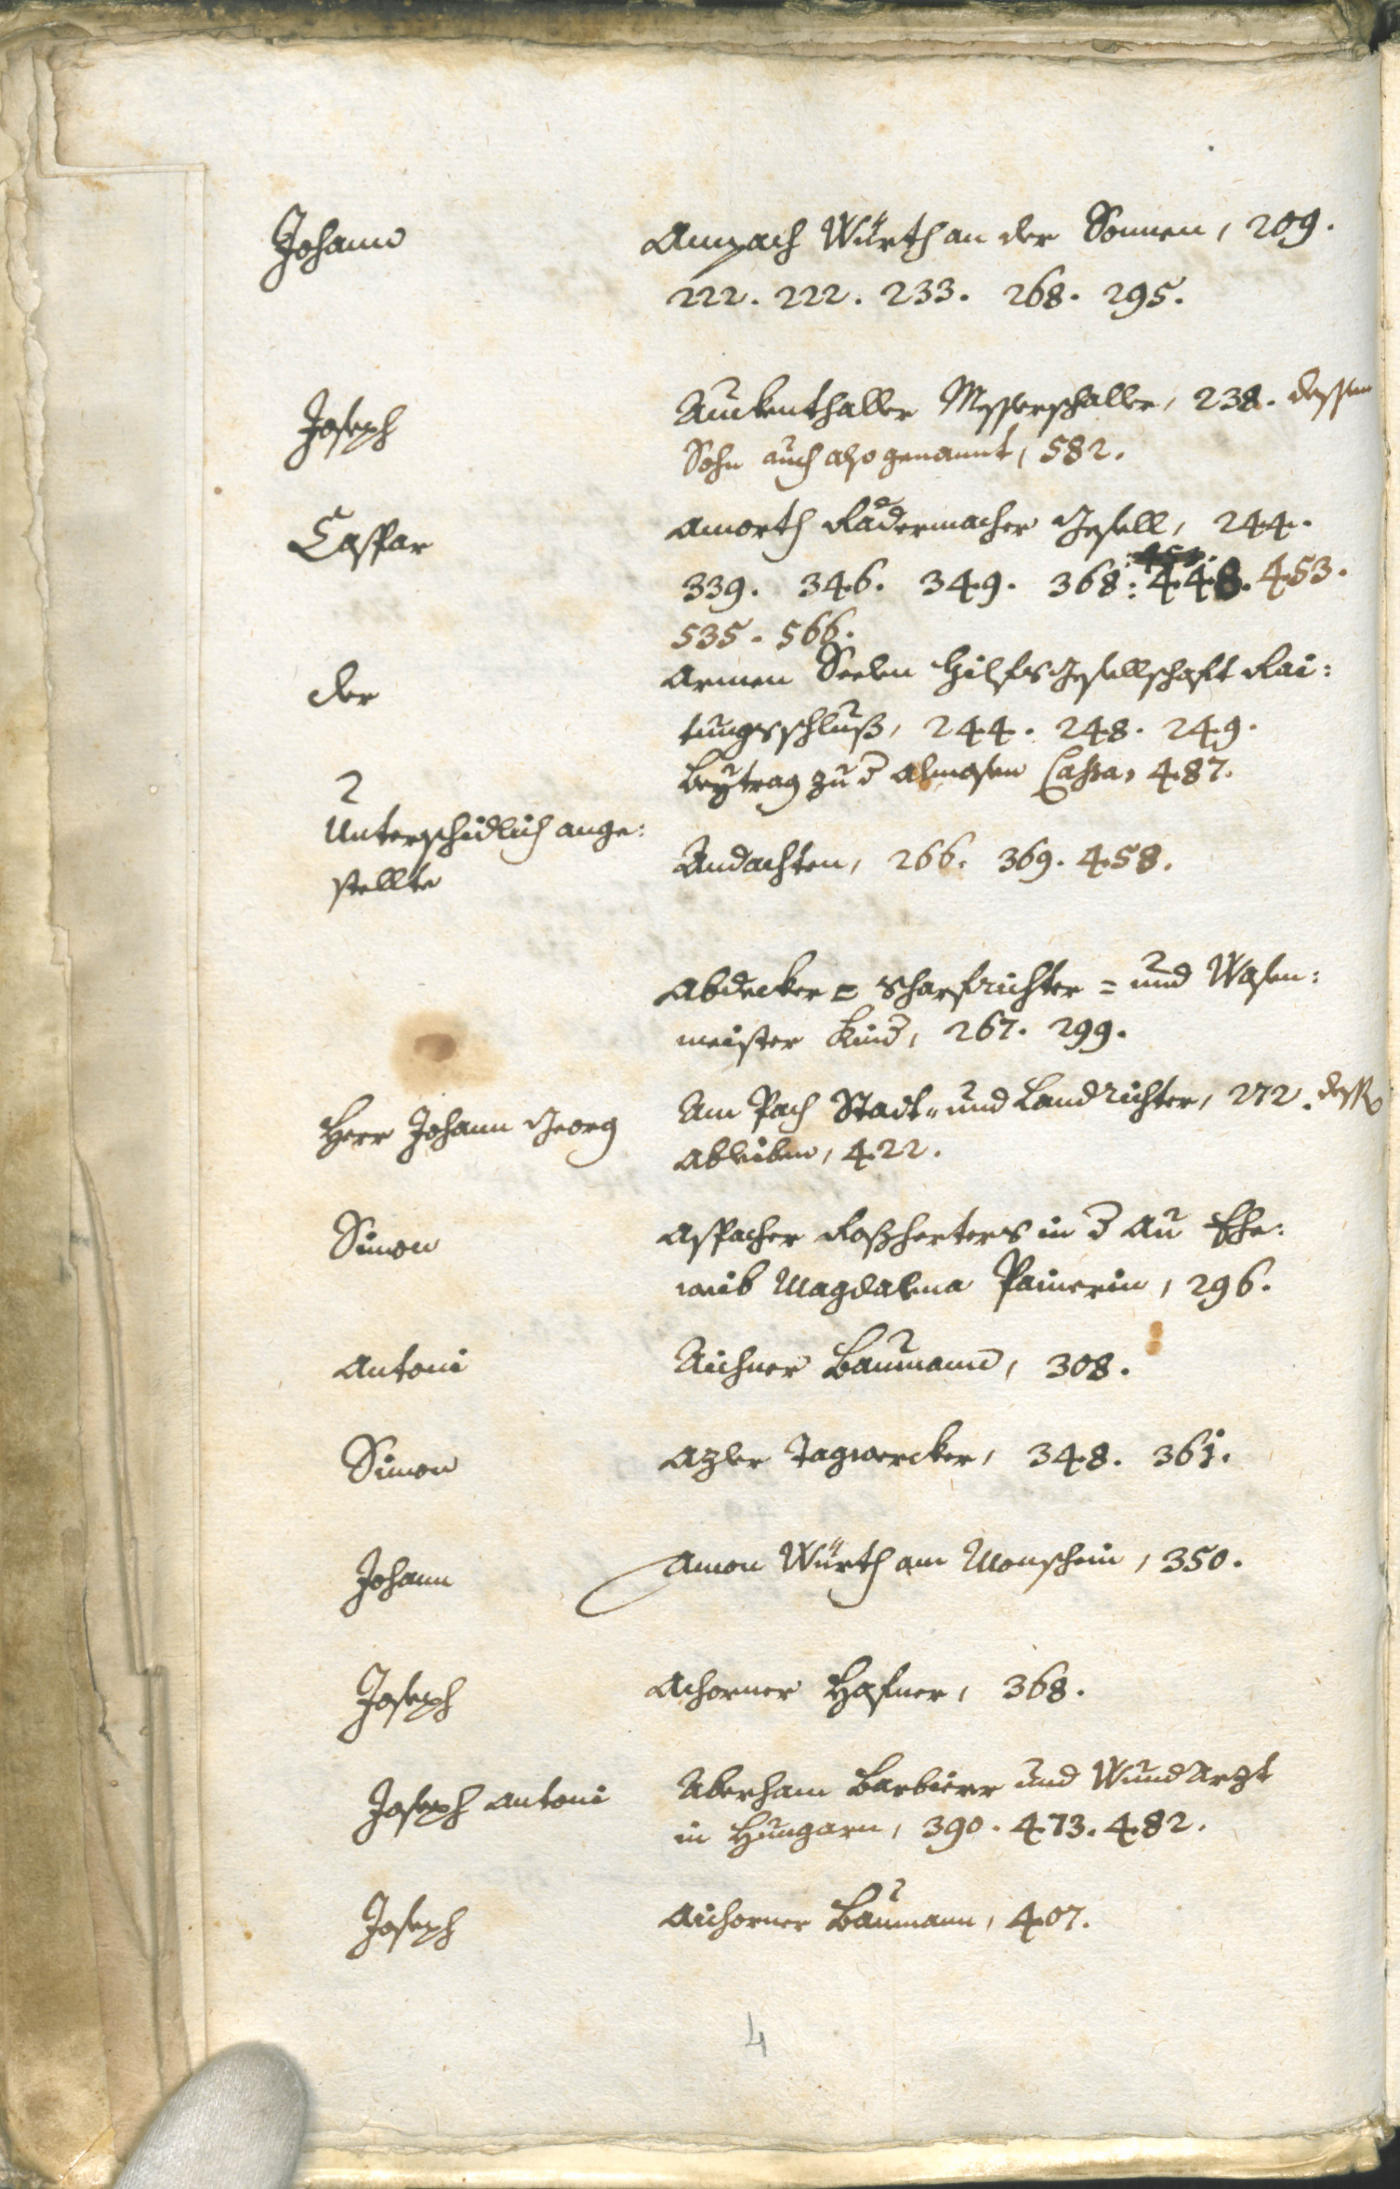 Johann Ampach Würth an der Sonnen, 209.
222. 222. 233. 268. 295.
Joseph Auckenthaller Messerschaller, 238. dessen
Sohn auch also genannt, 582.
Caspar Amorth Rädermacher Gesell, 244.
339. 346. 349. 368. 448. 453.
535. 566.
der Armen Seelen Hilfs Gesellschaft Rai:
tungsschluß, 244. 248. 249.
Beÿtrag zu d Almosen Cassa, 487.
Unterschidlich ange:
stellte Andachten, 266. 369. 458.
Abdecker = Scharfrichter = und Wasen:
meister Kind, 267. 299.
Herr Johann Georg Am Pach Stadt- und Landrichter, 272. dessen
Ableiben, 422.
Simon Aspacher Roßherters in d Au Ehe:
weib Magdalena Painerin, 296.
Antoni Aichner Baumann, 308.
Simon Azler Tagwercker, 348. 361.
Johann Amon Würth am Monschein, 350.
Joseph Achorner Hafner, 368.
Joseph Antoni Aberham Barbierer und Wund Arzt
in Hungarn, 390. 473. 482.
Joseph Aichorner Baumann, 407.
4